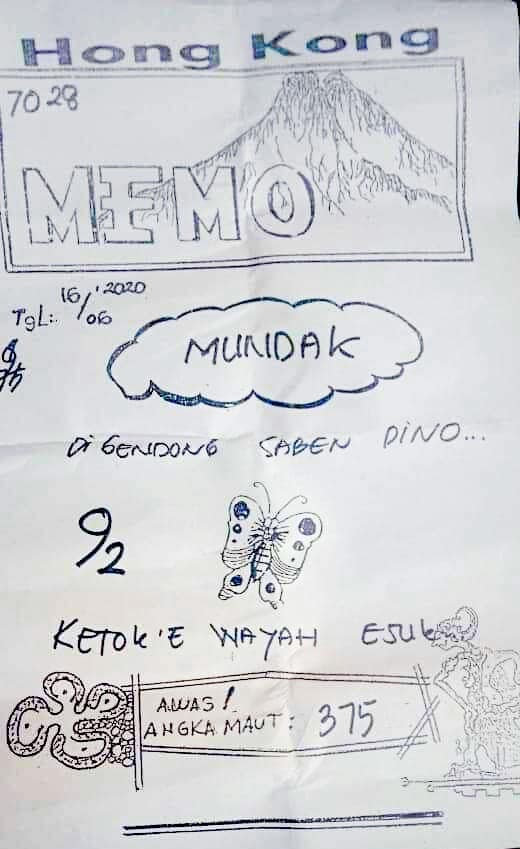 Hong Kong
7028
MEMO
TgL: 16/06 '2020
MUNDAK
Di GENDONG SABEN DINO...
92
KETOK'E WAYAH ESUK
AWAS!
ANGKA MAUT: 375